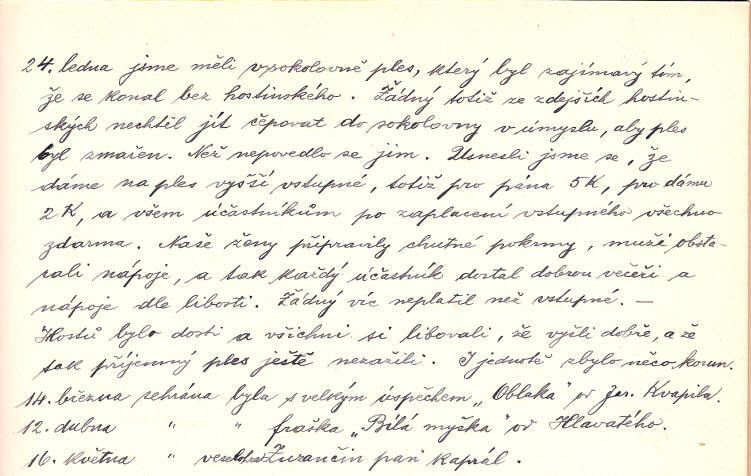 24. ledna jsme měli v sokolovně ples, který byl zajímavý tím,
že se konal bez hostinského. Žádný totiž ze zdejších hostin-
ských nechtěl jít čepovat do sokolovny v úmyslu, aby ples
byl zmařen. Než nepovedlo se jim. Usnesli jsme se, že
dáme na ples vyšší vstupné, totiž pro pána 5 K, pro dámu
2 K, a všem účastníkům po zaplacení vstupného všechno
zdarma. Naše ženy připravily chutné pokrmy, muži obsta-
rali nápoje, a tak každý účastník dostal dobrou večeři a
nápoje dle libosti. Žádný víc neplatil než vstupné. —
Hostů bylo dosti a všichni si libovali, že vyšli dobře, a že
tak příjemný ples ještě nezažili. I jednotě zbylo něco korun.
14. března sehrána byla s velkým úspěchem „Oblaka" od Jar. Kvapila.
12. dubna " " fraška „Bílá myška" od Hlavatého.
16. května " veselohra Zuzančin pan kaprál.